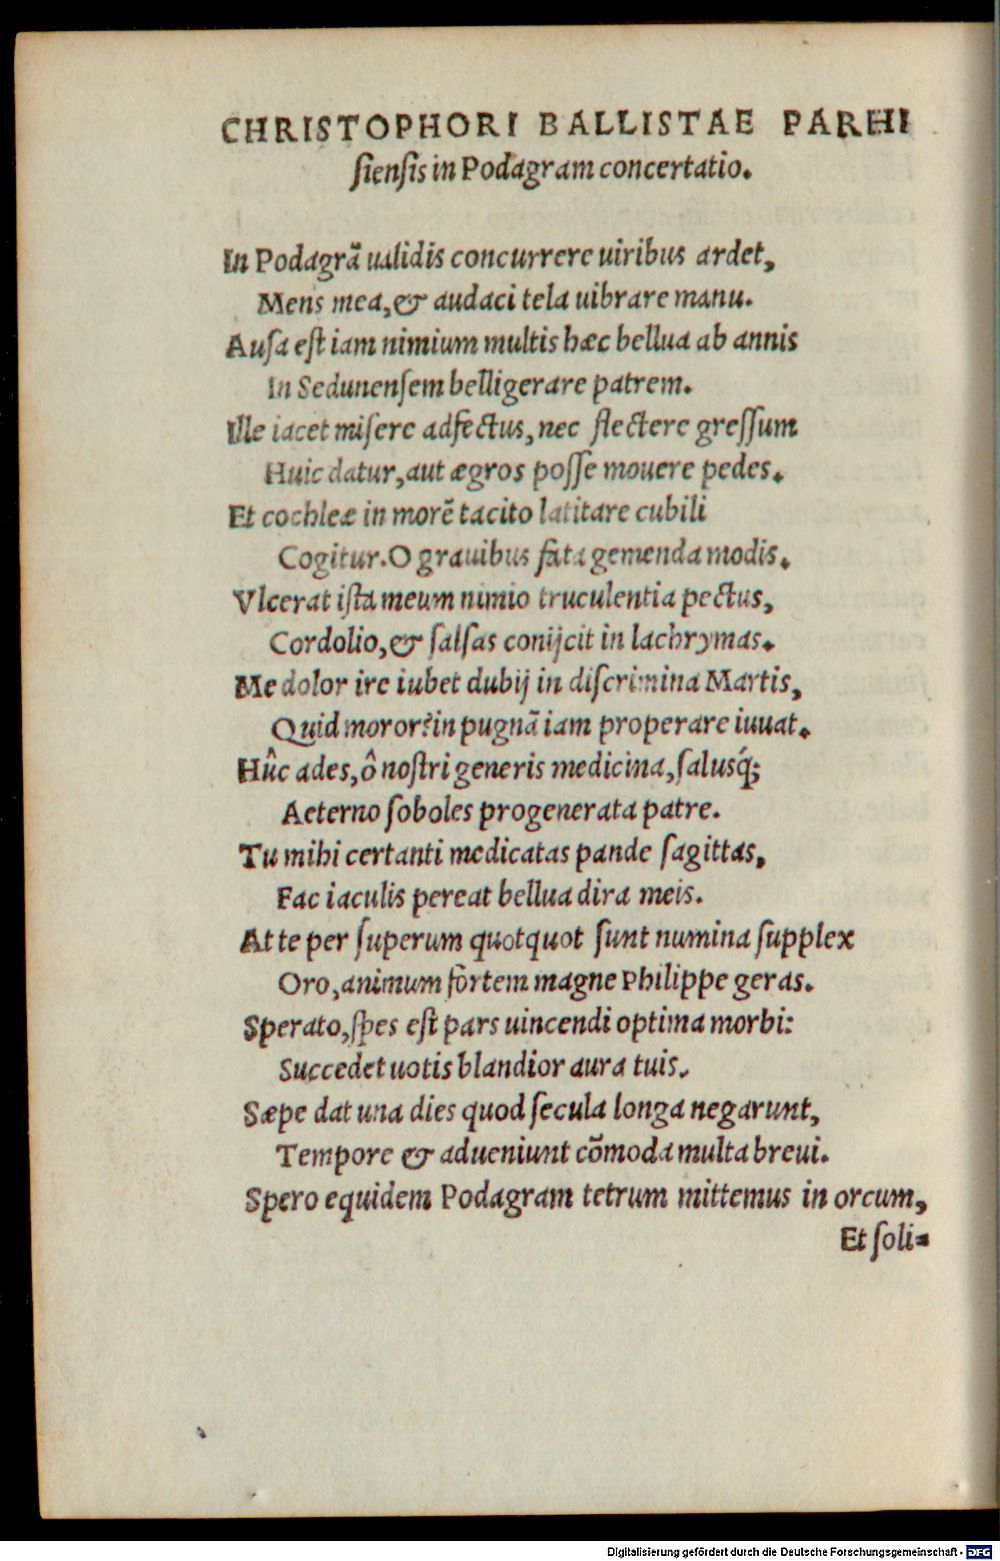 CHRISTOPHORI BALLISTAE PARHI
ſienſis in Podagram concertatio.
In Podagrã ualidis concurrere uiribus ardet,
Mens mea, & audaci tela uibrare manu.
Auſa eſt iam nimium multis hæc bellua ab annis
In Sedunenſem belligerare patrem.
Ille iacet miſere adfectus, nec flectere greſſum
Huic datur, aut ægros poſſe mouere pedes.
Et cochleæ in morẽ tacito latitare cubili
Cogitur. O grauibus fata gemenda modis.
Vlcerat iſta meum nimio truculentia pectus,
Cordolio, & ſalſas conijcit in lachrymas.
Me dolor ire iubet dubij in diſcrimina Martis,
Quid moror? in pugnã iam properare iuuat.
Hûc ades, ô noſtri generis medicina, ſalusq́;
Aeterno ſoboles progenerata patre.
Tu mihi certanti medicatas pande ſagittas,
Fac iaculis pereat bellua dira meis.
At te per ſuperum quotquot ſunt numina ſupplex
Oro, animum fortem magne Philippe geras.
Sperato, ſpes eſt pars uincendi optima morbi:
Succedet uotis blandior aura tuis.
Sæpe dat una dies quod ſecula longa negarunt,
Tempore & adueniunt cõmoda multa breui.
Spero equidem Podagram tetrum mittemus in orcum,
Et ſoli=
Digitalisierung gefördert durch die Deutsche Forschungsgemeinschaft - DFG